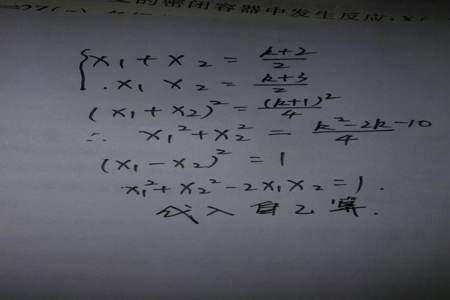 的密闭容器中发生反应,
x₁ + x₂ = \frac{k+2}{2}
x₁ x₂ = \frac{k+3}{2}
(x₁ + x₂)² = \frac{(k+1)²}{4}
∴ x₁² + x₂² = \frac{k²-2k-10}{4}
(x₁ - x₂)² = 1
x₁² + x₂² - 2x₁x₂ = 1.
代入自己算.